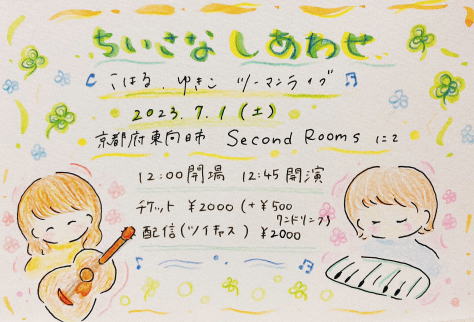 ちいさなしあわせ
こはる.ゆきこ ツーマンライブ
2023.7.1(土)
京都府東向日市 Second Rooms にて
12:00開場 12:45開演
チケット ¥2000(+¥500
ワンドリンク)
配信(ツイキャス) ¥2000